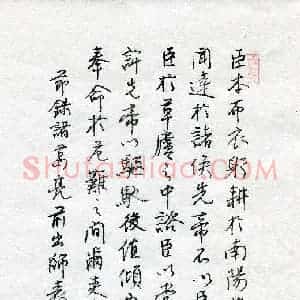 臣本布衣躬耕於南陽
聞達於諸侯先帝不以臣
臣於草廬之中諮臣以當
許先帝以驅馳後值傾
奉命於危難之間爾來
節錄諸葛亮前出師表
Shufaziliao.com